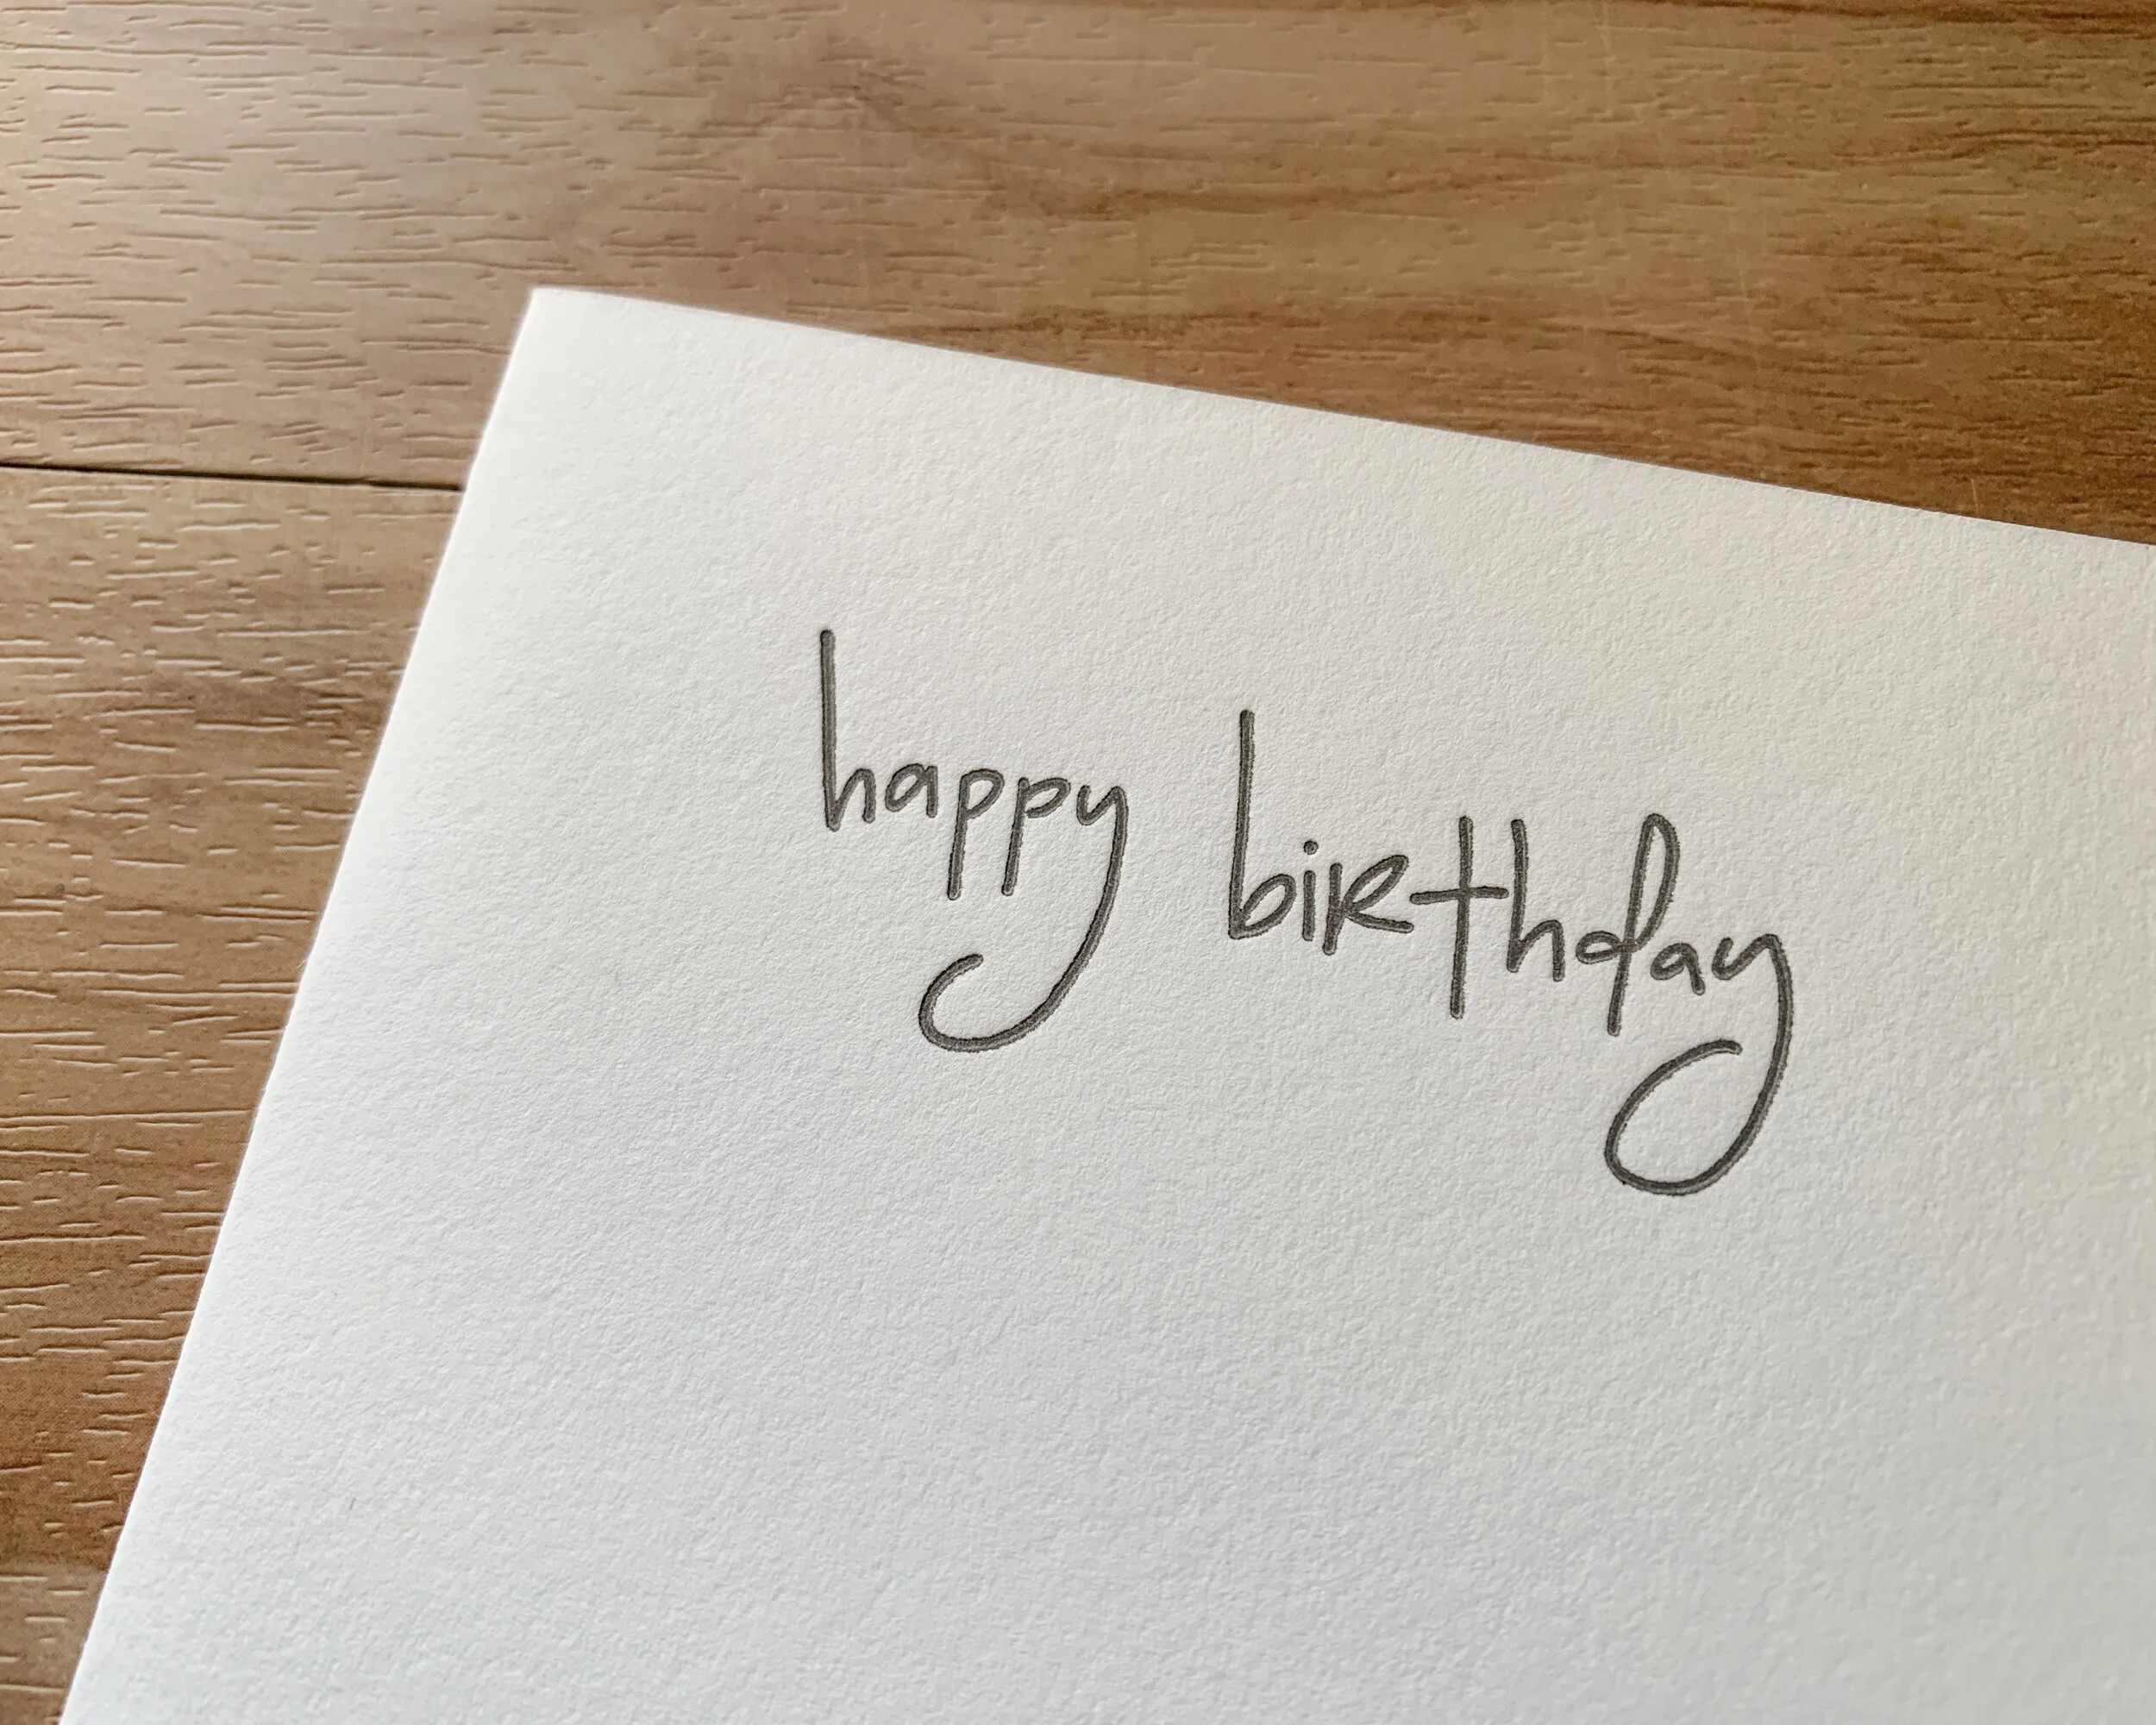 happy biRthday